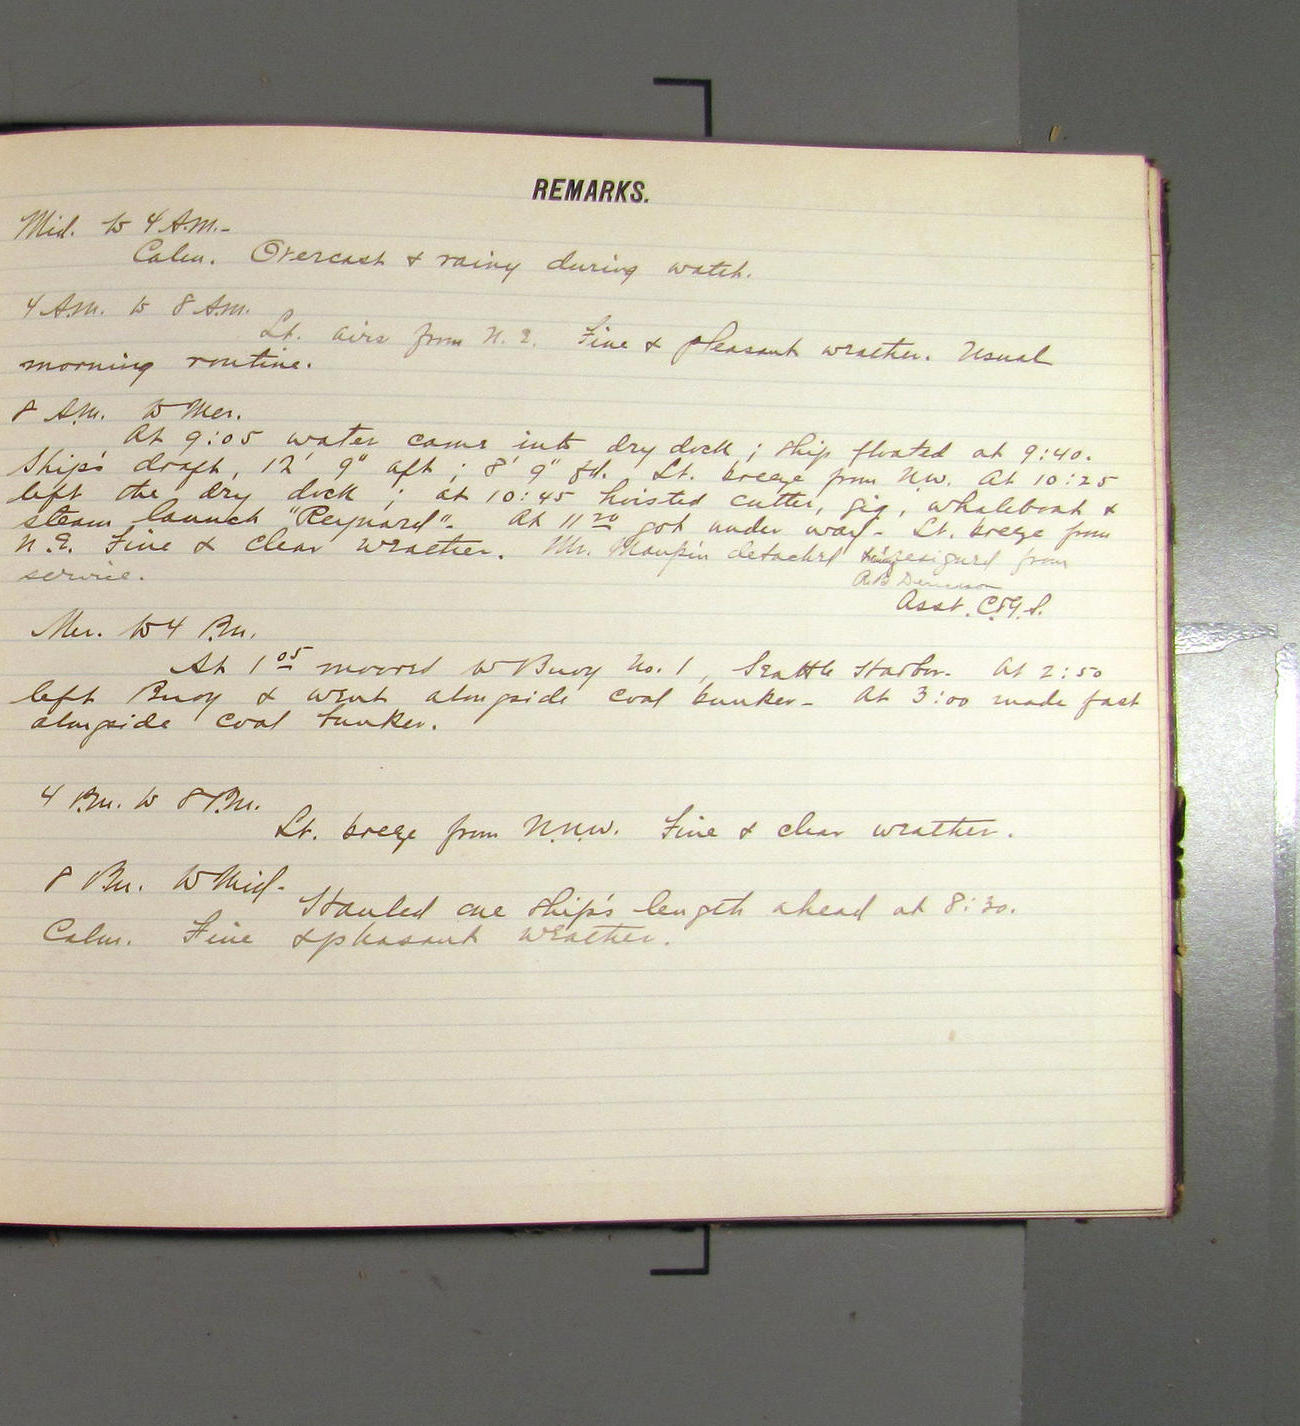 REMARKS.
Mid. to 4 A.M.-
Calm. Overcast & rainy during watch.
4 A.M. to 8 A.M.
Lt. airs from N.E. Fine & pleasant weather. Usual
morning routine.
8 A.M. to Mer.
At 9:05 water came into dry dock; ship floated at 9:40.
Ship's draft, 12' 9" aft; 8' 9" fd. Lt. breeze from N.W. At 10:25
left the dry dock; at 10:45 hoisted cutter, gig, whaleboat &
steam launch "Reynard". At 11 20 got under way- Lt. breeze from
N.E. Fine & clear weather. Mr. Maupin detached resigned from
service.
R.B. Derickson
Asst. C.&G.S.
Mer. to 4 P.M.
At 1 05 moored to Buoy No. 1, Seattle Harbor. At 2:50
left Buoy & went alongside coal bunker- At 3:00 made fast
alongside coal bunker.
4 P.M. to 8 P.M.
Lt. breeze from N.N.W. Fine & clear weather.
8 P.M. to Mid-
Hauled one ship's length ahead at 8:30.
Calm. Fine & pleasant weather.